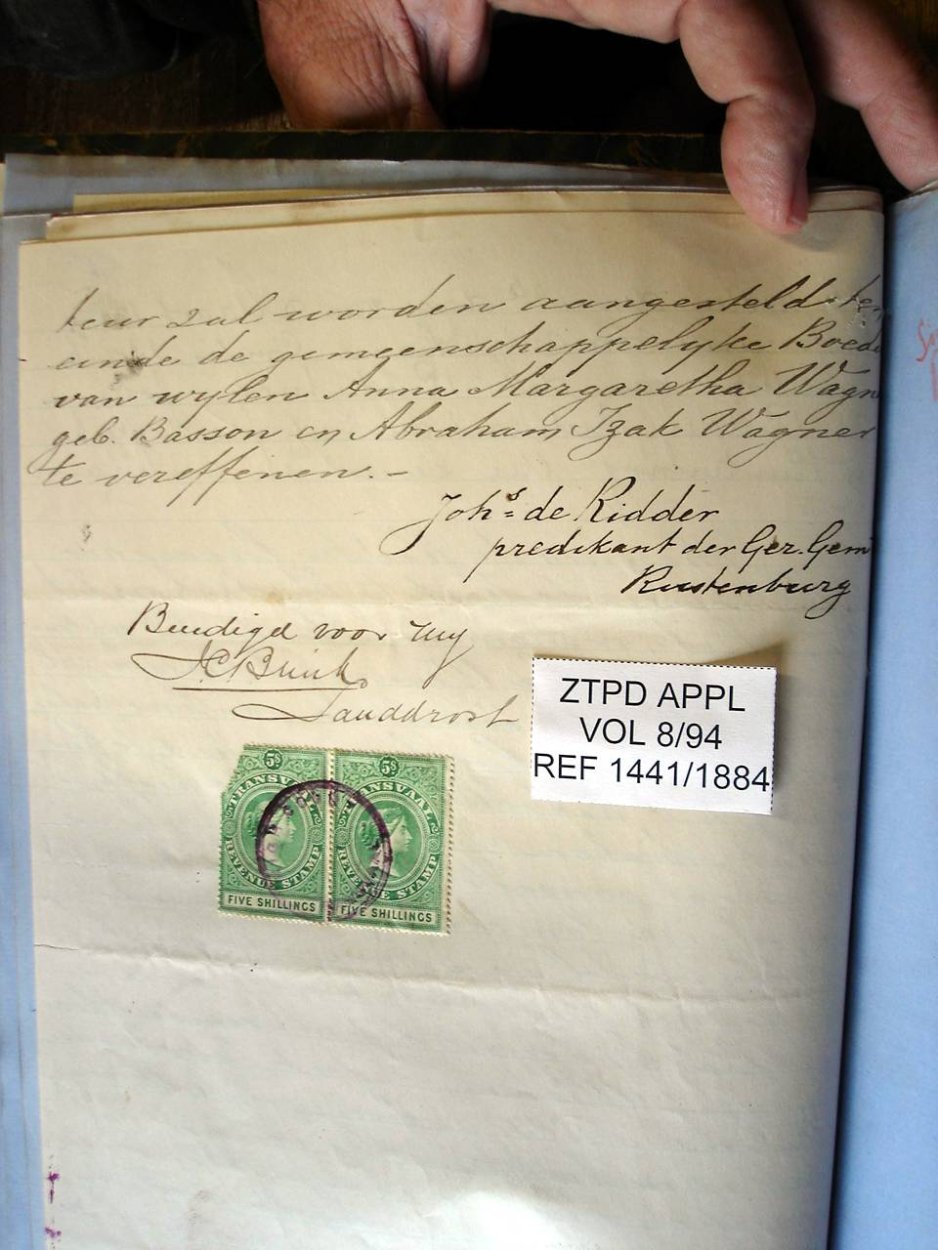 teur zal worden aangesteld te
einde de gemeenschappelyke Boed
van wylen Anna Margaretha Wagn
geb. Basson en Abraham Izak Wagner
te vereffenen. –
Joh.s de Ridder
predikant der Ger. Gem
Rustenburg
Beedigd voor my
Landdrost
ZTPD APPL
VOL 8/94
REF 1441/1884
5s 5s
TRANSVAAL TRANSVAAL
REVENUE STAMP REVENUE STAMP
FIVE SHILLINGS FIVE SHILLINGS